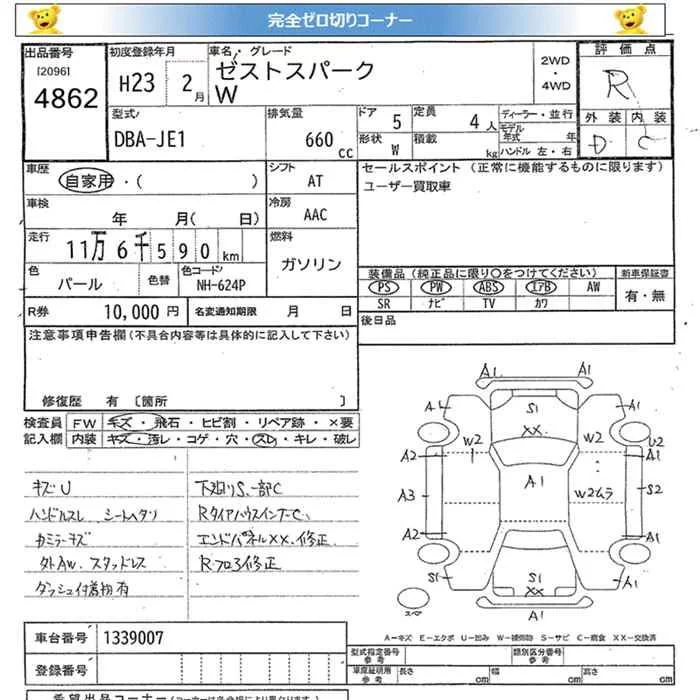 完全ゼロ切りコーナー
出品番号
[2096]
4862
初度登録年月
H23 2月
車名・グレード
ゼストスパーク
W
2WD
・
4WD
評価点
R
外装 内装
D C
型式
DBA-JE1
排気量
660 cc
ドア 5
形状 W
定員 4人
積載 kg
ディーラー・並行
モデル年式 年
ハンドル 左・右
車歴
自家用・( )
シフト
AT
車検
年 月( 日)
冷房
AAC
走行
11万6千590km
燃料
ガソリン
色
パール
色替
色コード
NH-624P
R券 10,000円
名変通知期限 月 日
セールスポイント (正常に機能するものに限ります)
ユーザー買取車
装備品 (純正品に限り○をつけてください)
PS PW ABS エアB AW
SR ナビ TV カワ
新車保証書
有・無
後日品
注意事項申告欄 (不具合内容等は具体的に記入して下さい)
修復歴 有 [箇所 ]
検査員
記入欄
FW キズ・飛石・ヒビ割・リペア跡・×要
内装 キズ・汚レ・コゲ・穴・スレ・キレ・破レ
キズU
ハンドルスレ シートヘタリ
カミラーキズ
外AW、スタッドレス
ダッシュ付着物有
下廻りS、一部C
RタイアハウスインナーC、
エンドパネルXX、修正
Rフロア修正
A1 A1
A1 S1 A1
XX
W2 W2 U2
A2 A1
A3 A1 W2ムラ S2
A2 A1
S1 S1 A1
XX
A1
スペア
A-キズ E-エクボ U-凹み W-補修跡 S-サビ C-腐食 XX-交換済
車台番号 1339007
登録番号
型式指定番号 参考
類別区分番号 参考
車庫証明用 参考
長さ cm 幅 cm 高さ cm
希望出品コーナー